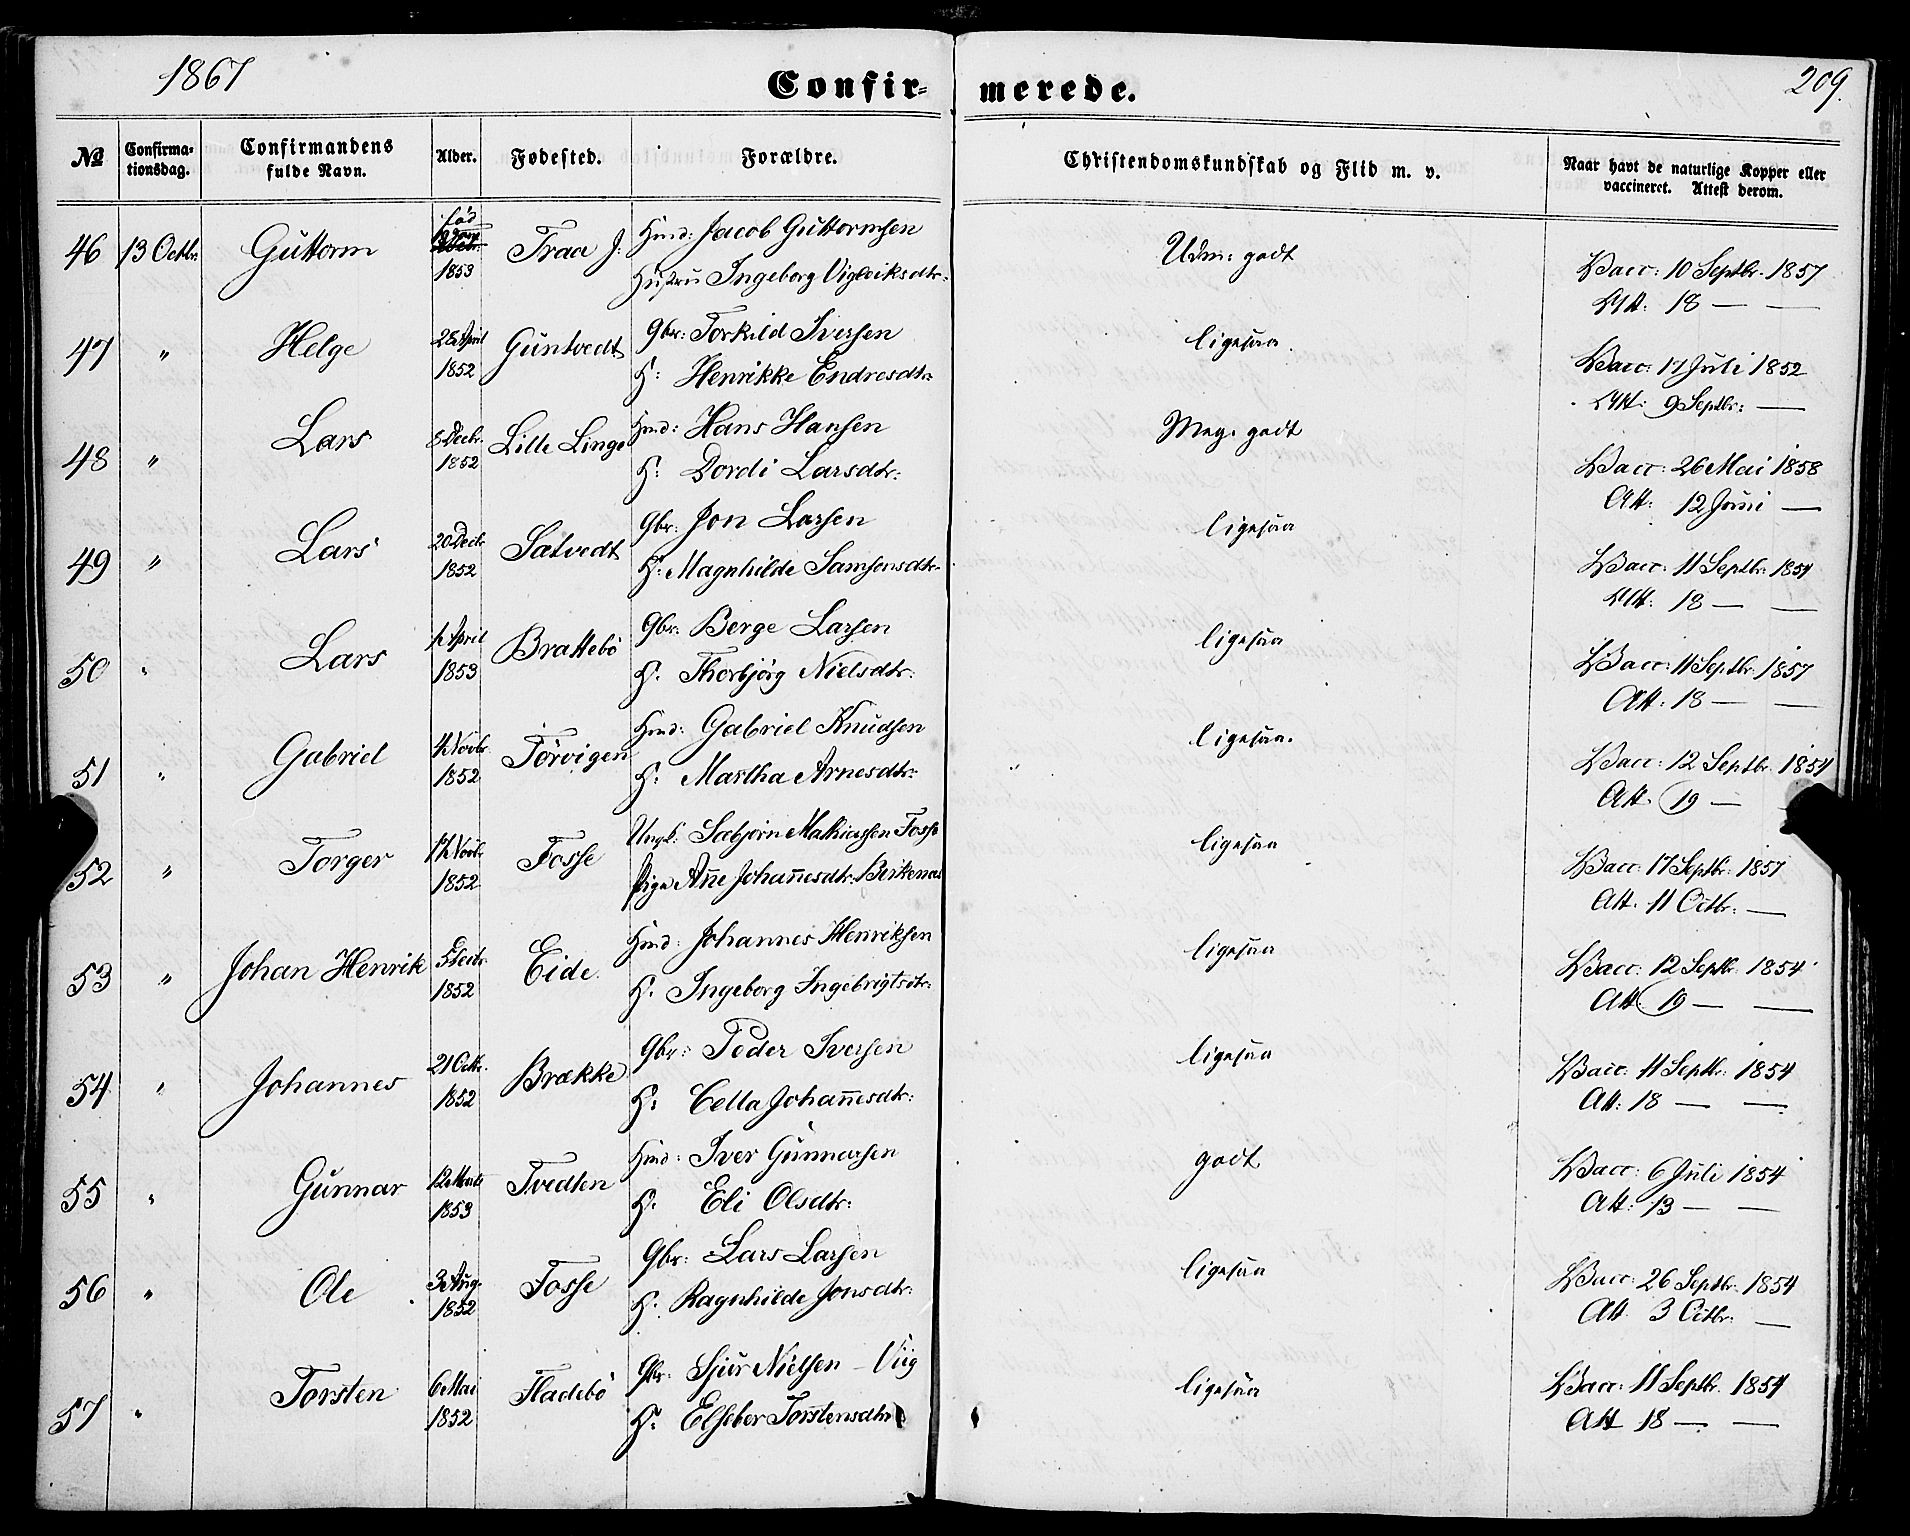 1867 Confir- merede. 209.
No Confirma- tionsdag. Confirmandens fulde Navn. Alder. Fødested. Forældre. Christendomskundskab og Flid m. v. Naar havt de naturlige Kopper eller vaccineret. Attest derom.
46 13 Octbr. Guttorm fød 1853 Traa J. Hmd: Jacob Guttormsen Udm: godt Vacc: 10 Septbr. 1857
Hustru Ingeborg Vigleiksdtr. Att: 18 — —
47 " Helge 28 April 1852 Guntvedt Gbr: Torkild Iversen ligesaa. Vacc: 17 Juli 1852
H: Henrikke Endresdtr. Att: 9 Septbr: —
48 " Lars 8 Decbr. 1852 Lille Linge Hmd: Hans Hansen Meg. godt Vacc: 26 Mai 1858
H: Dordi Larsdtr: Att: 12 Juni —
49 " Lars 20 Decbr 1852 Sætvedt Gbr: Jon Larsen ligesaa Vacc: 11 Septbr. 1854
H: Magnhilde Samsonsdtr. Att: 18 — —
50 " Lars April 1853 Brattebö Gbr: Berge Larsen ligesaa Vacc: 11 Septbr. 1857
H. Thorbjörg Nielsdtr: Att: 18 — —
51 " Gabriel 4 Novbr. 1852 Törvigen Hmd: Gabriel Knudsen ligesaa. Vacc: 12 Septbr. 1854
H: Martha Arnesdtr: Att. 19 —
52 " Torger Novbr. 1852 Fosse Ungk: Sæbjörn Mathiassen Fosse ligesaa Vacc: 17 Septbr: 1857
Pige Anne Johannesdtr. Birkenes Att. 11 Octbr: —
53 " Johan Henrik 5 Decbr 1852 Eide. Hmd: Johannes Henriksen ligesaa Vacc: 12 Septbr. 1854
H. Ingeborg Ingebrigtsdtr: Att. 19 — —
54 " Johannes 21 Octbr. 1852 Brække Gbr: Peder Iversen ligesaa Vacc: 11 Septbr. 1854
H: Cella Johannesdtr: Att: 18 — —
55 " Gunnar 12 Marts 1853 Tvedten Hmd: Iver Gunnarsen godt Vacc: 6 Juli 1854
H. Eli Olsdtr: Att: 13 — —
56 " Ole 3 Aug. 1852 Fosse Gbr: Lars Larsen ligesaa Vacc: 26 Septbr. 1854
H. Ragnhilde Jonsdtr: Att. 3 Octbr: —
57 " Torsten 6 Mai 1852 Fladebö Gbr. Sjur Nielsen - Viig ligesaa Vacc: 11 Septbr. 1854
H. Elseber Torstensdtr Att 18 — —